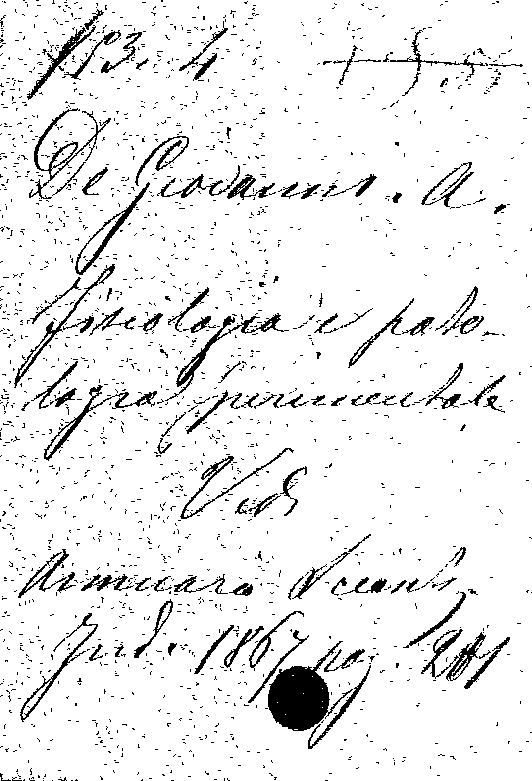 De Giovanni. A.
Fisiologia e pato-
logia sperimentale
Vedi
Annuario Scient.
Ind. 1867 pag. 201